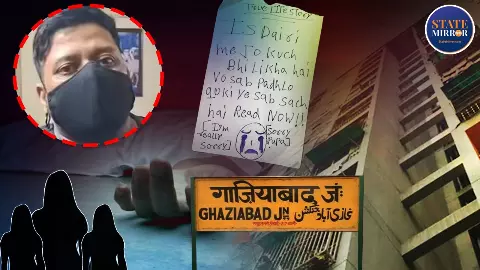 STATE
MIRROR
True Life Story
Is Dairi
me Jo kuch
Bhi Likha hai
vo sab Padhlo
qoki ye sab sach
hai Read NOW!!
[I'm
Really
Sorry]
[Sorry
Papa]
गाजियाबाद जं॰
GHAZIABAD JN